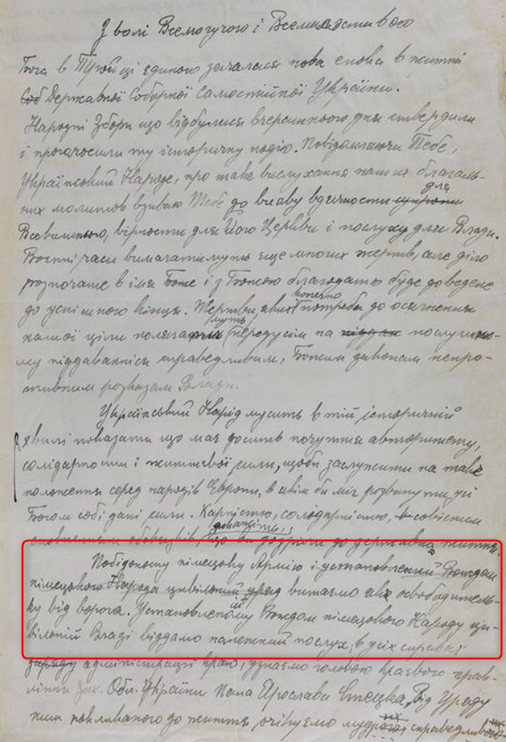 З волі Всемогучого і Всемилостивого
Бога в Тройці єдиного зачалася нова епоха в життю
Соб Державної Соборної Самостійної України.
Народні Збори що відбулися вчерашнього дня ствердили
і проголосили ту історичну подію. Повідомляючи Тебе,
Український Народе, про таке вислухання наших благаль-
для
них молитов взиваю Тебе до вияву вдячности
Всевишнього, вірности для Його Церкви і послуху для Влади.
Воєнні часи вимагатимуть ще многих жертв, але діло
розпочате в імя Боже і з Божою благодаттю буде доведене
до успішного кінця. Жертви яких конечно потреба до осягнення
нашої ціли полягати муть передусім на послушно-
му підданнійся справедливим, Божим законам непро-
тивним розказам Влади.
Український Нарід мусить в тій історичній
хвилі показати що має досить почуття авторитету,
солідарности і життєвої сили, щоби заслужити на таке
положення серед народів Европи, в якім би міг розвинути усі
Богом собі дані сили. Карністю, солідарністю, совісним
сповненням обовязків докажіть що ви дозріли до державного життя.
Побідоносну німецьку Армію і установлений Вождом
німецького Народа цивільний уряд витаємо як освободитель-
ку від ворога. Установленому Вождом німецького Народу ци-
вільній Владі віддамо належний послух, в усіх справах
заряду адміністрації краю, узнаємо головою краєвого прав-
ління Зах. Обл. України Пана Ярослава Стецька. Від Уряду
ним покликаного до життя очікуємо мудрого, справедливого